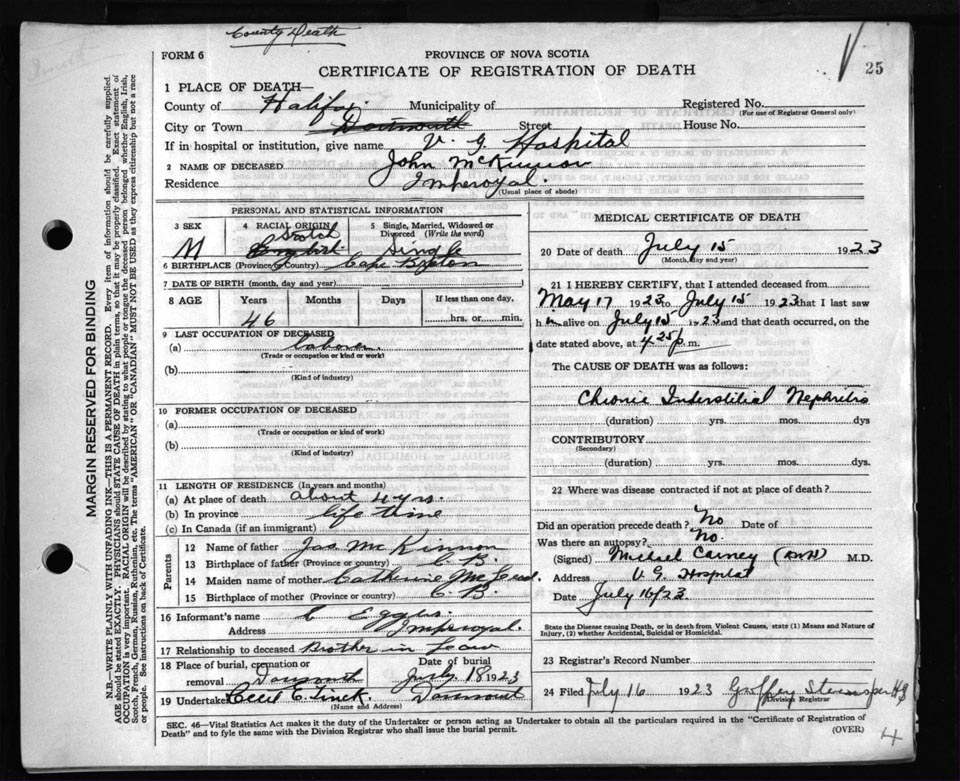 County Death
FORM 6
PROVINCE OF NOVA SCOTIA
25
CERTIFICATE OF REGISTRATION OF DEATH
1 PLACE OF DEATH—
County of Halifax Municipality of Registered No.
(For use of Registrar General only)
City or Town Dartmouth Street House No.
If in hospital or institution, give name V. G. Hospital
2 NAME OF DECEASED John McKinnon
Residence Imperoyal.
(Usual place of abode)
PERSONAL AND STATISTICAL INFORMATION
3 SEX 4 RACIAL ORIGIN 5 Single, Married, Widowed or Divorced (Write the word)
M Scotch English Single
6 BIRTHPLACE (Province or Country) Cape Breton
7 DATE OF BIRTH (month, day and year)
8 AGE Years Months Days If less than one day,
46 hrs. or min.
9 LAST OCCUPATION OF DECEASED
(a) Laborer
(Trade or occupation or kind of work)
(b)
(Kind of industry)
10 FORMER OCCUPATION OF DECEASED
(a)
(Trade or occupation or kind of work)
(b)
(Kind of industry)
11 LENGTH OF RESIDENCE (In years and months)
(a) At place of death about 4 yrs.
(b) In province life time
(c) In Canada (if an immigrant)
Parents
12 Name of father Jas. Mc Kinnon
13 Birthplace of father (Province or country) C. B.
14 Maiden name of mother Catherine McLeod.
15 Birthplace of mother (Province or country) C. B.
16 Informant's name C
Address Imperoyal.
17 Relationship to deceased Brother in Law
18 Place of burial, cremation or removal Dartmouth Date of burial July 18 1923
19 Undertaker Cecil E. Dartmouth
(Name and Address)
MEDICAL CERTIFICATE OF DEATH
20 Date of death July 15 1923
(Month, day and year)
21 I HEREBY CERTIFY, that I attended deceased from
May 17 1923 to July 15 1923 that I last saw
h im alive on July 15 1923 and that death occurred, on the
date stated above, at 4.25 p.m.
The CAUSE OF DEATH was as follows:
Chronic Interstitial Nephritis
(duration) yrs. mos. dys
CONTRIBUTORY
(Secondary)
(duration) yrs. mos. dys.
22 Where was disease contracted if not at place of death?
Did an operation precede death? No Date of
Was there an autopsy? No.
(Signed) Michael Carney M.D.
Address V. G. Hospital
Date July 16/23
State the Disease causing Death, or in death from Violent Causes, state (1) Means and Nature of Injury, (2) whether Accidental, Suicidal or Homicidal.
23 Registrar's Record Number
24 Filed July 16 1923
Division Registrar
SEC. 46—Vital Statistics Act makes it the duty of the Undertaker or person acting as Undertaker to obtain all the particulars required in the "Certificate of Registration of
Death" and to fyle the same with the Division Registrar who shall issue the burial permit.
(OVER)
4
MARGIN RESERVED FOR BINDING
N.B.—WRITE PLAINLY WITH UNFADING INK—THIS IS A PERMANENT RECORD. Every item of information should be carefully supplied.
AGE should be stated EXACTLY. PHYSICIANS should STATE CAUSE OF DEATH in plain terms, so that it may be properly classified. Exact statement of
OCCUPATION is very important. RACIAL ORIGIN will be described by stating to what people or tongue the deceased person belonged whether English, Irish,
Scotch, French, German, Russian, Ruthenian, etc. The terms "AMERICAN" OR "CANADIAN" MUST NOT BE USED as they express citizenship but not a race
or people. See instructions on back of Certificate.